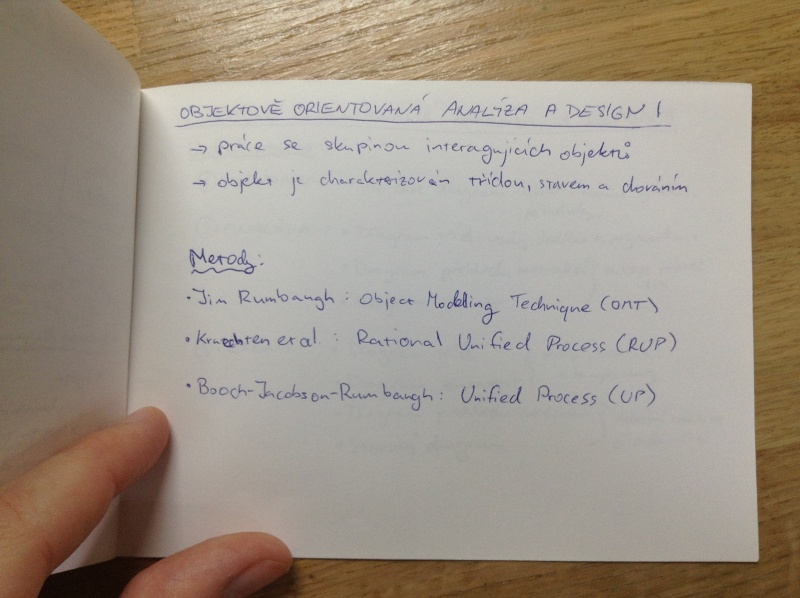 OBJEKTOVĚ ORIENTOVANÁ ANALÝZA A DESIGN I
→ práce se skupinou interagujících objektů
→ objekt je charakterizován třídou, stavem a chováním
Metody:
• Jim Rumbaugh : Object Modeling Technique (OMT)
• Kruechten et al. : Rational Unified Process (RUP)
• Booch-Jacobson-Rumbaugh : Unified Process (UP)